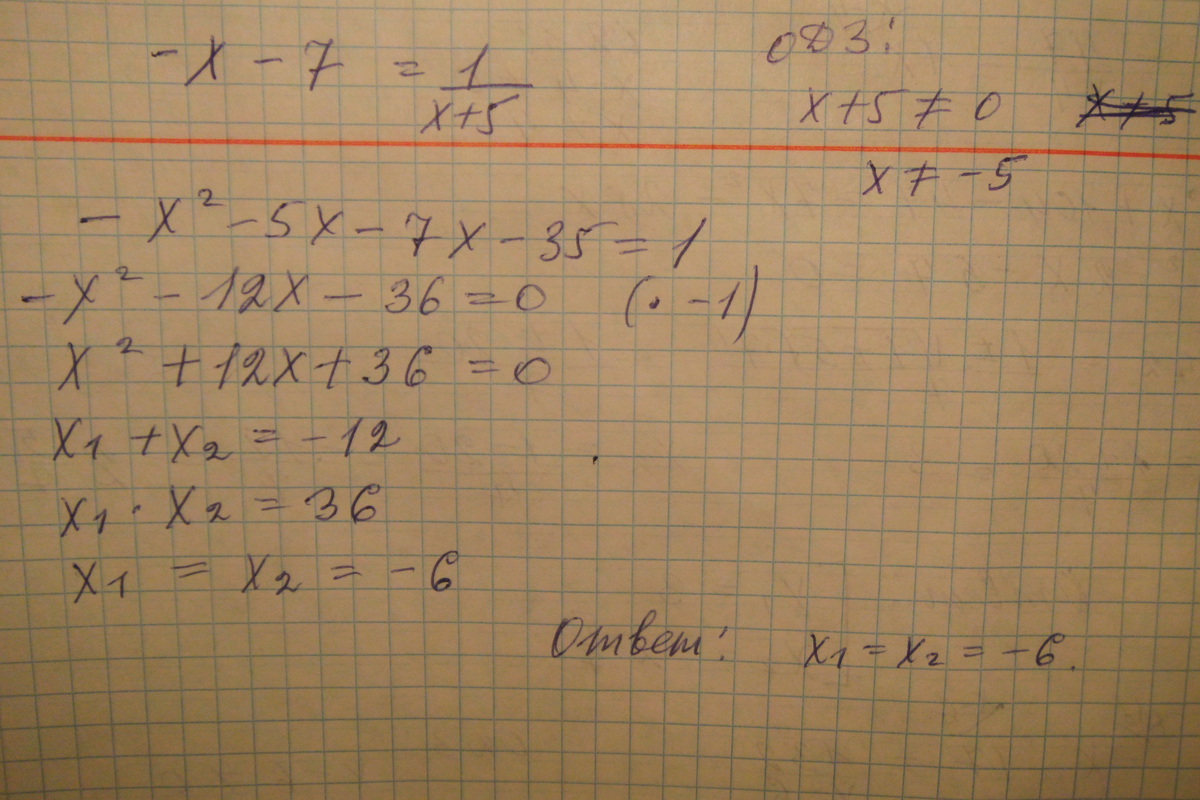 -x - 7 = 1/(x+5)
ОДЗ:
x+5 ≠ 0 x ≠ 5
x ≠ -5
- x² - 5x - 7x - 35 = 1
- x² - 12x - 36 = 0 (· -1)
x² + 12x + 36 = 0
x₁ + x₂ = -12
x₁ · x₂ = 36
x₁ = x₂ = -6
Ответ: x₁ = x₂ = -6.